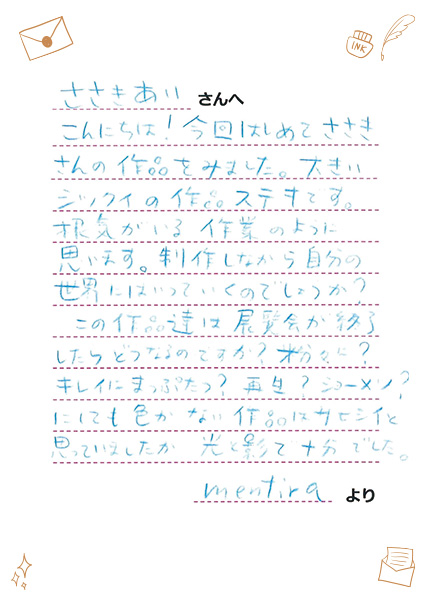 INK
ささきあい さんへ
こんにちは！今回はじめてささき
さんの作品をみました。大きい
シックイの作品ステキです。
根気がいる作業のように
思います。制作しながら自分の
世界にはいっていくのでしょうか？
この作品達は展覧会が終了
したらどうなるのですか？粉々に？
キレイにまっぷたつ？再生？
にしても色がない作品はサビシイと
思っていましたが光と影で十分でした。
mentira より